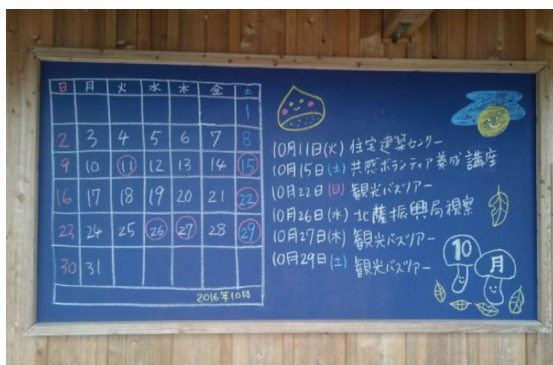 日 月 火 水 木 金 土
1
2 3 4 5 6 7 8
9 10 11 12 13 14 15
16 17 18 19 20 21 22
23 24 25 26 27 28 29
30 31
2016年10月
10月11日(火) 住宅建築センター
10月15日(土) 共感ボランティア養成講座
10月22日(日) 観光バスツアー
10月26日(水) 北薩振興局視察
10月27日(木) 観光バスツアー
10月29日(土) 観光バスツアー
10月